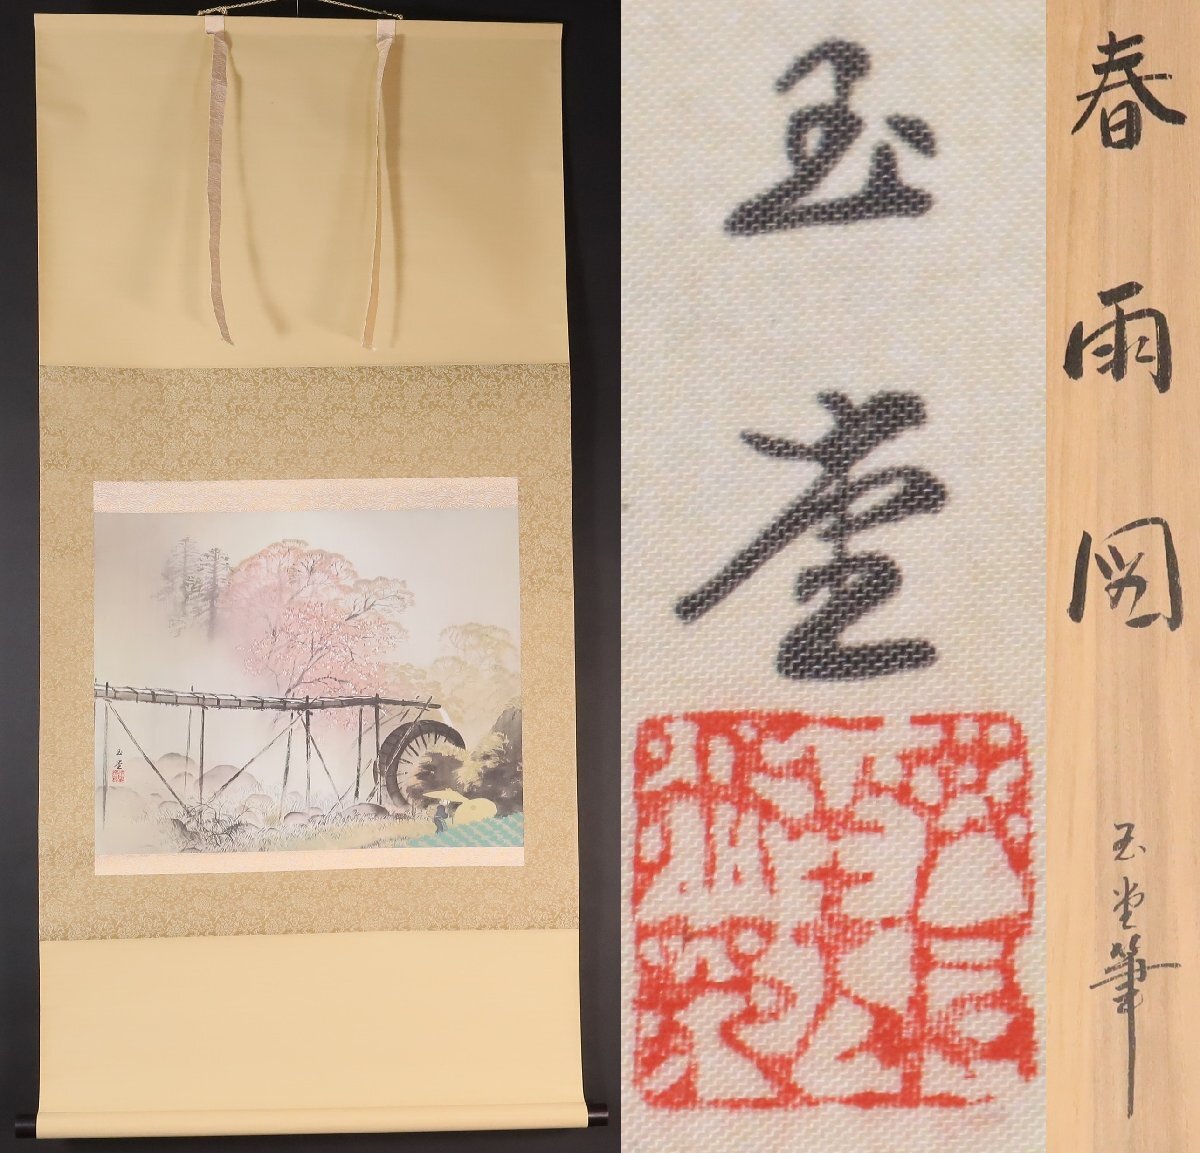 玉堂
玉堂
春雨図
玉堂筆